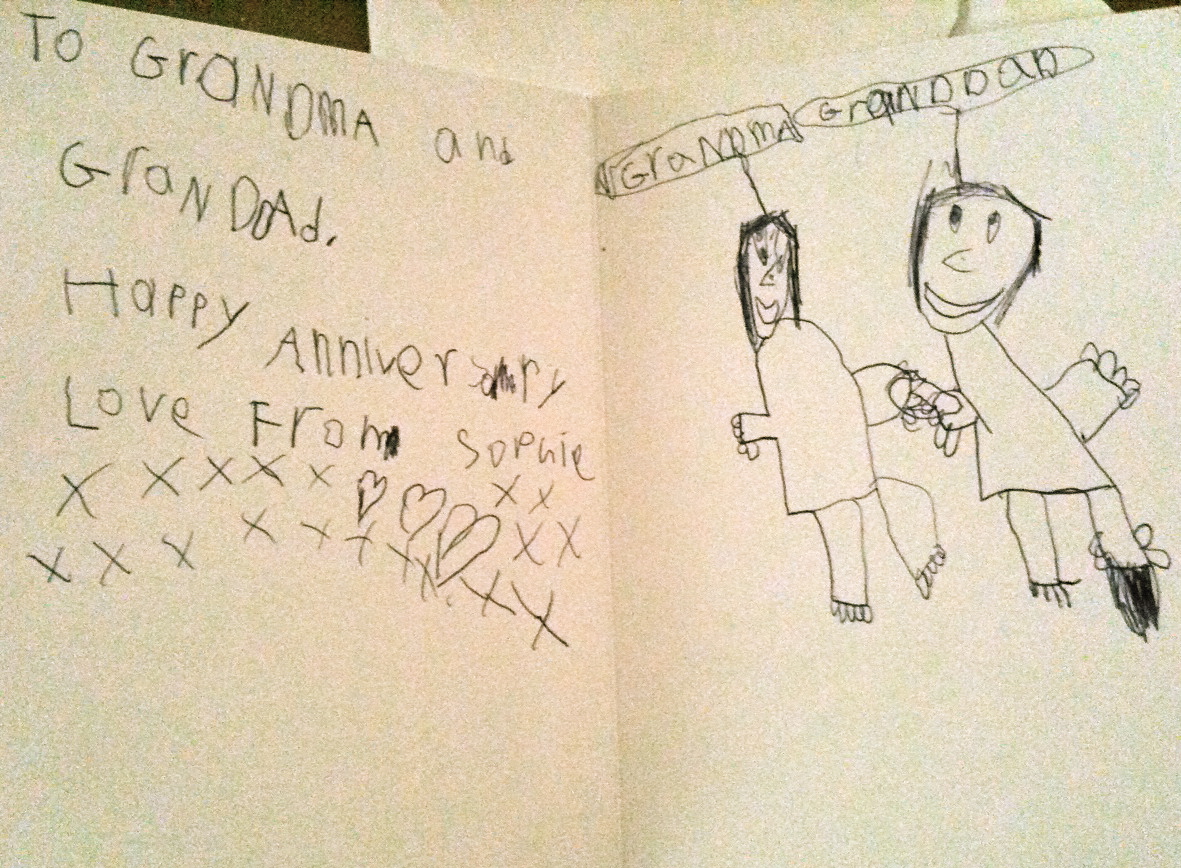 To GraNDmA and
GraNDDAd.
Happy Anniversary
Love From Sophie
X X X X X X X
X X X X X X
X X X X X X X
GraNDmA GraNDDaD